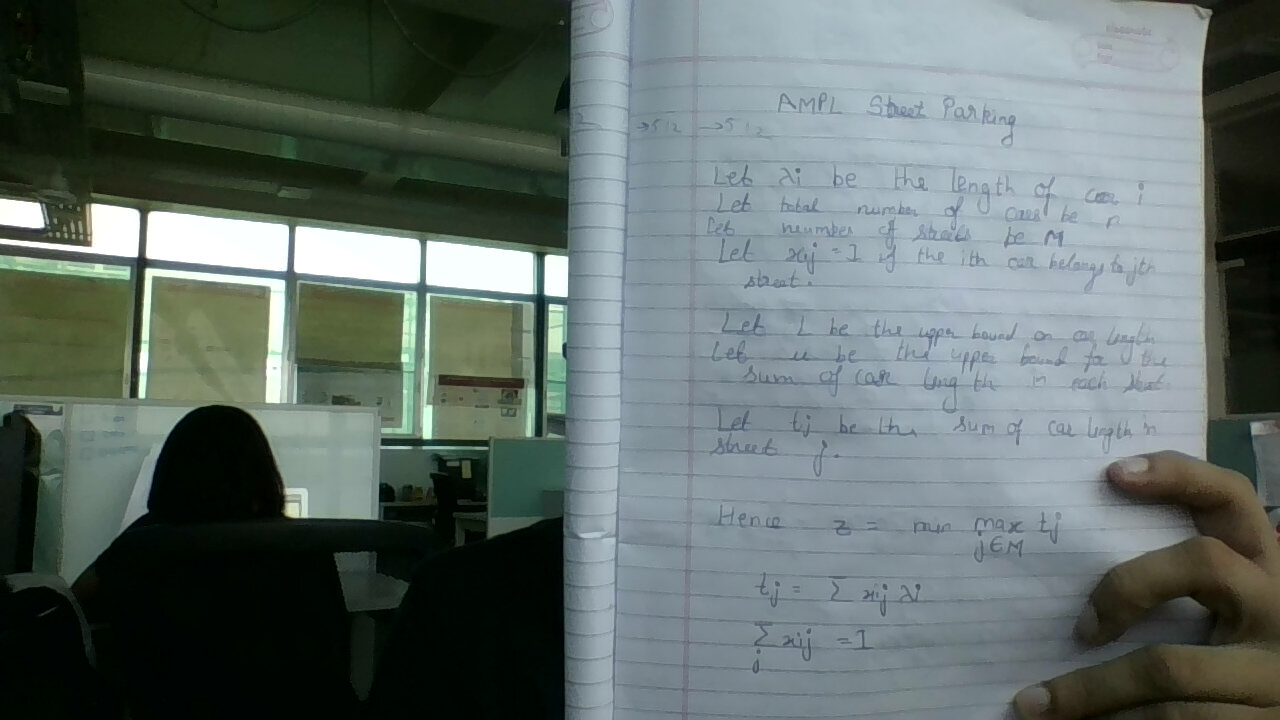 AMPL Street Parking
Let λi be the length of car i
Let total number of cars be n
Let number of streets be M
Let xij = 1 if the ith car belongs to jth
street.
Let L be the upper bound on car length
Let u be the upper bound for the
sum of car length in each street
Let tj be the sum of car length in
street j.
Hence z = min max tj
j∈M
tj = Σ xij λi
Σ xij = 1
j